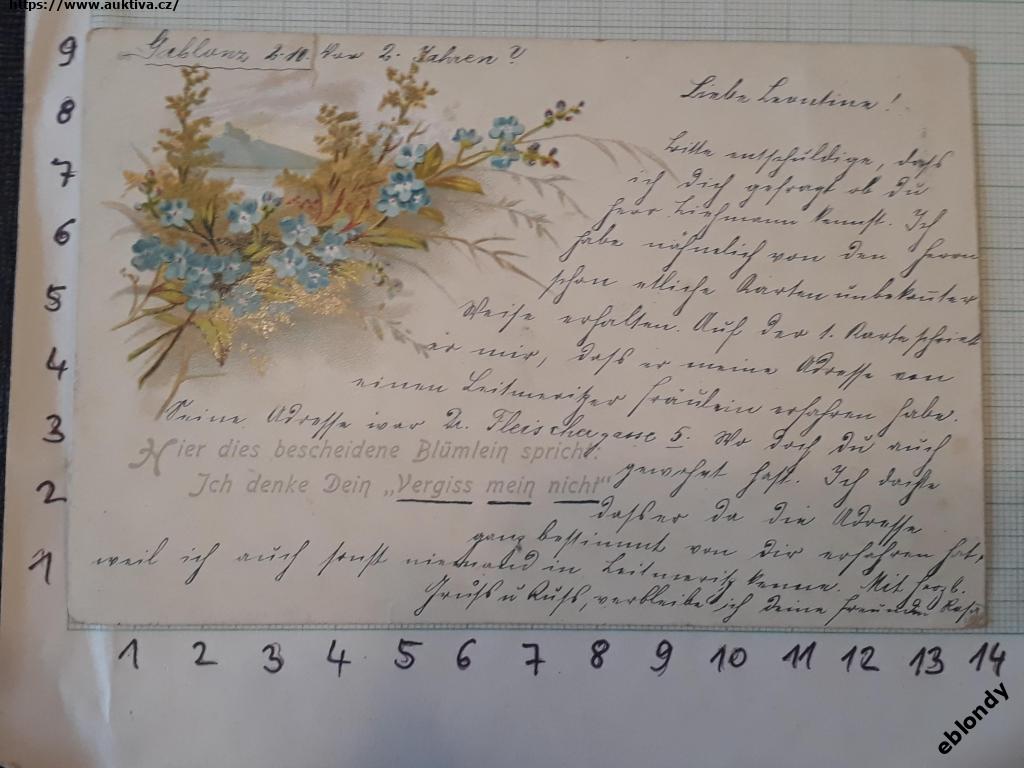 https://www.auktiva.cz/
Gablonz 2.10. Vor 2. Jahren?
Liebe Leontine!
Bitte entschuldige, dass
ich dich gefragt ob du
Herr Liehmann kennst. Ich
habe nähmlich von den Herrn
schon etliche Karten unbekannter
Weise erhalten. Auf der 1. Karte schrieb
er mir, dass er meine Adresse von
einen Leitmeritzer Fräulein erfahren habe.
Seine Adresse war Fleischergasse 5. Wo doch du auch
Hier dies bescheidene Blümlein spricht:
gewohnt hast. Ich dachte
Ich denke Dein „Vergiss mein nicht"
dass er da die Adresse
ganz bestimmt von dir erfahren hat,
weil ich auch sonst niemand in Leitmeritz kenne. Mit herzl.
Gruss u Kuss, verbleibe ich deine Freundin
9
8
7
6
5
4
3
2
1
1 2 3 4 5 6 7 8 9 10 11 12 13 14
eblondy